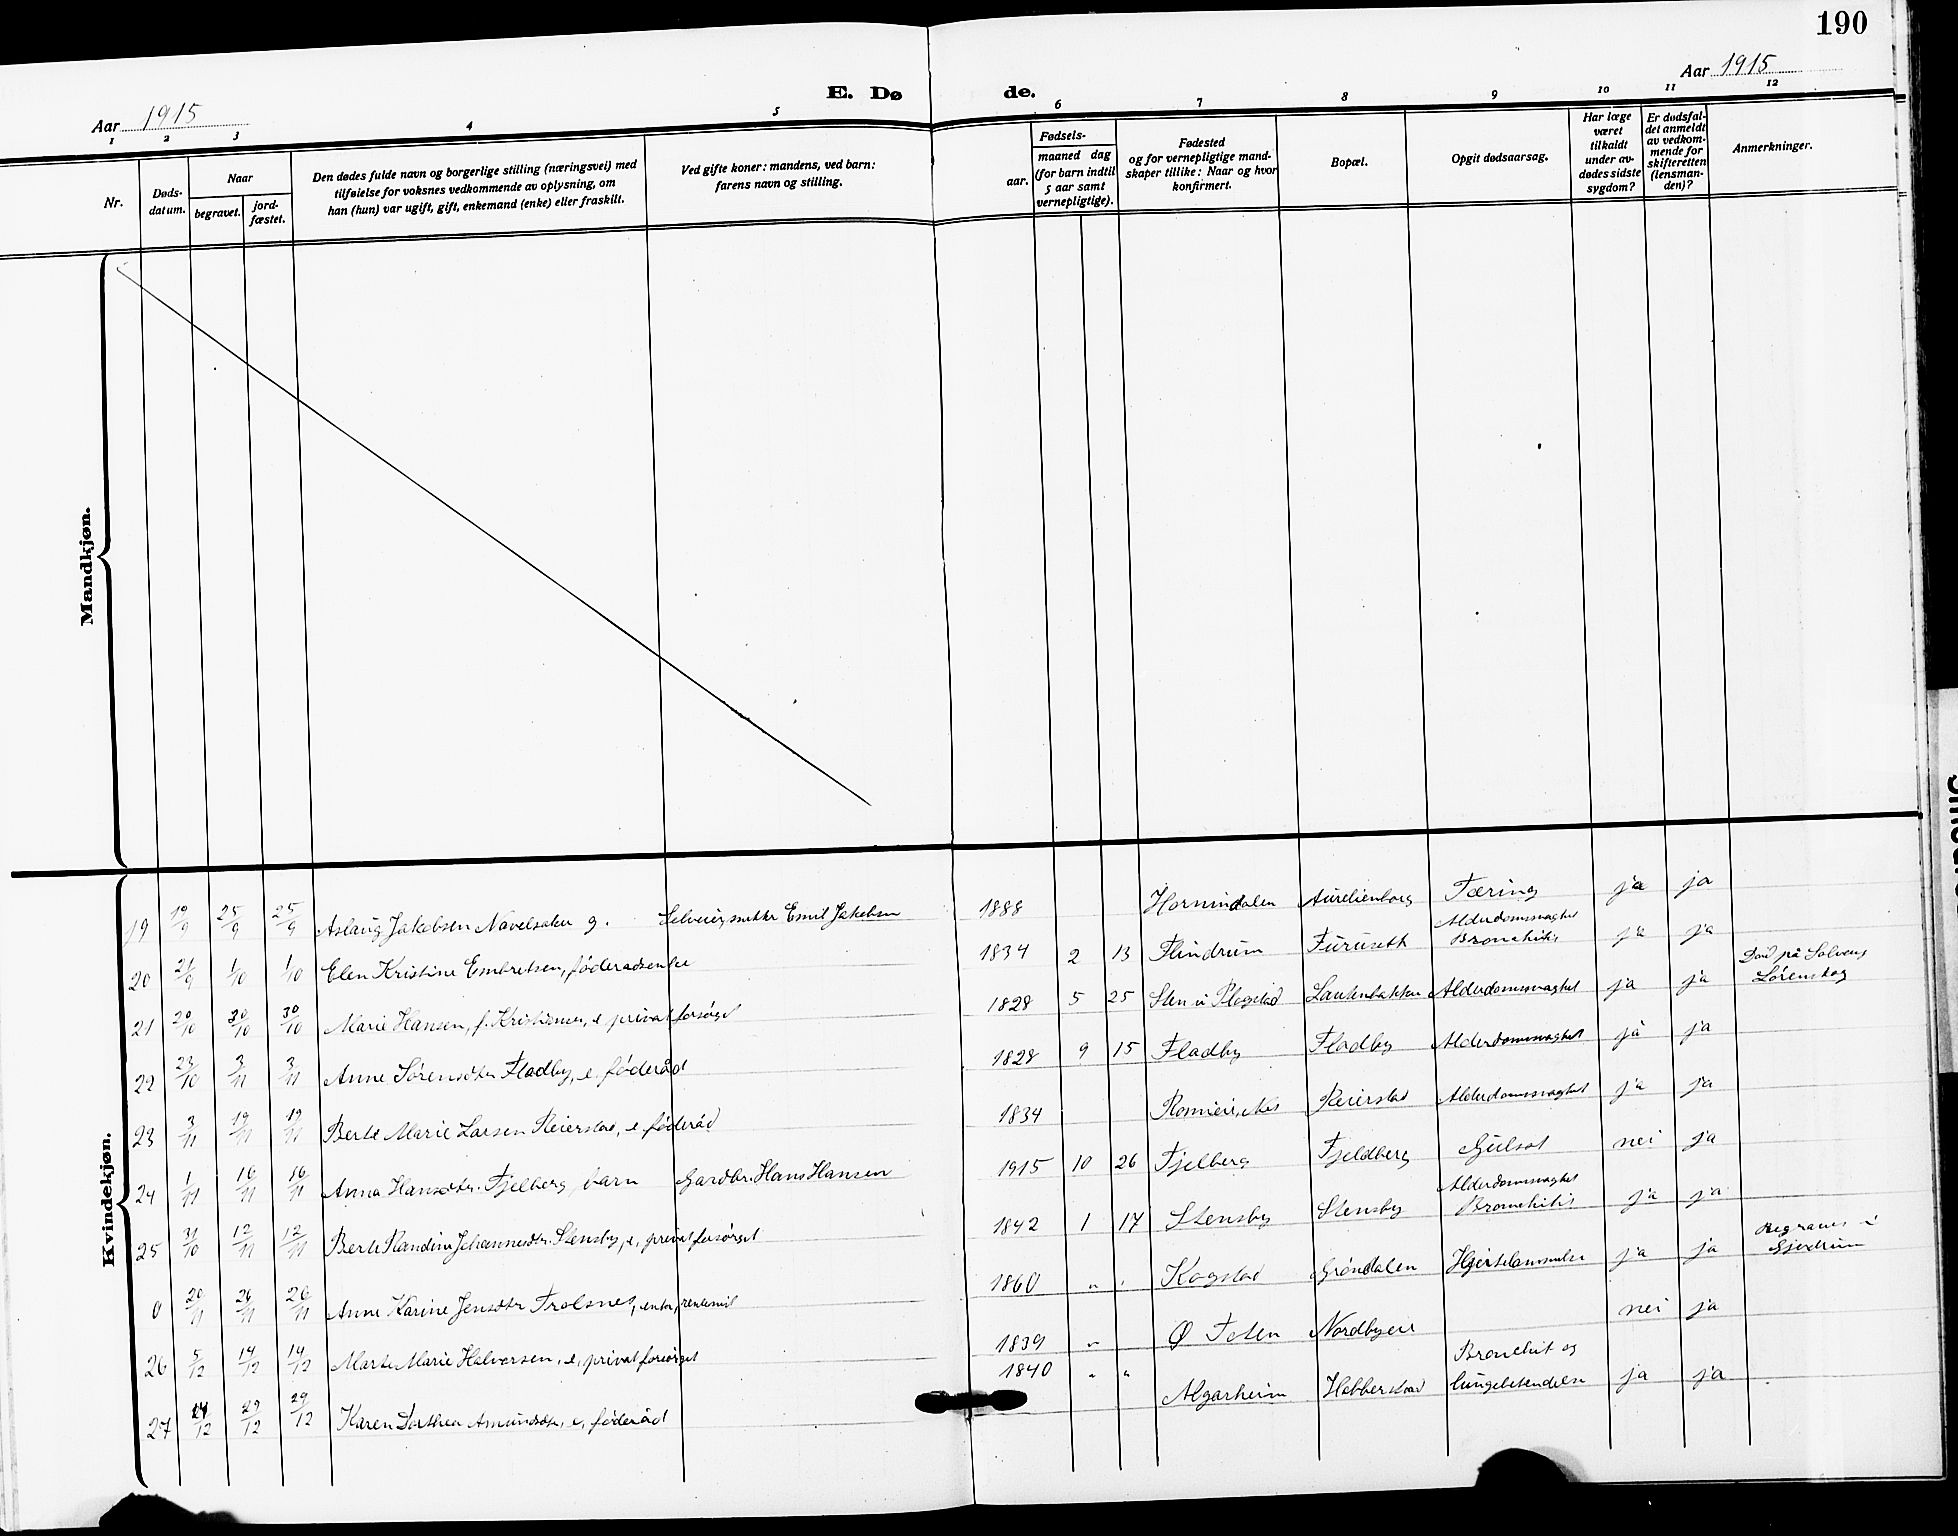 190
Aar 1915
E. Dø de.
Aar 1915
1 2 3 4 5 6 7 8 9 10 11 12
Nr.
Døds-
datum.
Naar
begravet.
jord-
fæstet.
Den dødes fulde navn og borgerlige stilling (næringsvei) med
tilføielse for voksnes vedkommende av oplysning, om
han (hun) var ugift, gift, enkemand (enke) eller fraskilt.
Ved gifte koner: mandens, ved barn:
farens navn og stilling.
Fødsels-
aar.
maaned dag
(for barn indtil
5 aar samt
vernepligtige).
Fødested
og for vernepligtige mand-
skaper tillike: Naar og hvor
konfirmert.
Bopæl.
Opgit dødsaarsag.
Har læge
været
tilkaldt
under av-
dødes sidste
sygdom?
Er dødsfal-
det anmeldt
av vedkom-
mende for
skifteretten
(lensman-
den)?
Anmerkninger.
Mandkjøn.
Kvindekjøn.
19 19/9 25/9 25/9 Aslaug Jakobsen Navelsaker g. Selveier, snekker Emil Jakobsen 1888 Hornindalen Aurelienborg Tæring ja ja
20 21/9 1/10 1/10 Elen Kristine Embretsen, føderaadsenke 1834 2 13 Flindrum Furuseth Alderdomssvaghet Bronchitis ja ja
21 20/10 30/10 30/10 Marie Hansen, f. Kristiansen, e. privat forsørget 1828 5 25 Sten i Plogstad Lautenbakken Alderdomssvaghet ja ja Død på Solveng Lørenskog
22 23/10 3/11 3/11 Anne Sørensdtr. Fladby, e. føderåd 1828 9 15 Fladby Fladby Alderdomssvaghet ja ja
23 3/11 19/11 19/11 Berte Marie Larsen Reierstad, e. føderåd 1834 Nes Reierstad Alderdomssvaghet ja ja
24 1/11 16/11 16/11 Anna Hansdtr. Fjelberg, barn Gardbr. Hans Hansen 1915 10 26 Fjelberg Fjeldberg Gulsot nei ja
25 31/10 12/11 12/11 Berte Randine Johannesdtr. Stensby, e, privat forsørget 1842 1 17 Stensby Stensby Alderdomssvaghet Bronchitis ja ja
0 20/11 26/11 26/11 Anne Karine Jensdtr. Trolsnes, enke, 1860 " " Kogstad Grøndalen Hjertelammelse ja ja Begraves i Gjerdrum
26 5/12 14/12 14/12 Marte Marie Halvorsen, e, privat forsørget 1839 " Ø Toten Nordbyeie nei ja
27 24/12 29/12 29/12 Karen Dorthea Amundsdtr, e, føderåd 1840 " " Algarheim Hobberstad Bronchit og lungebetendelse ja ja